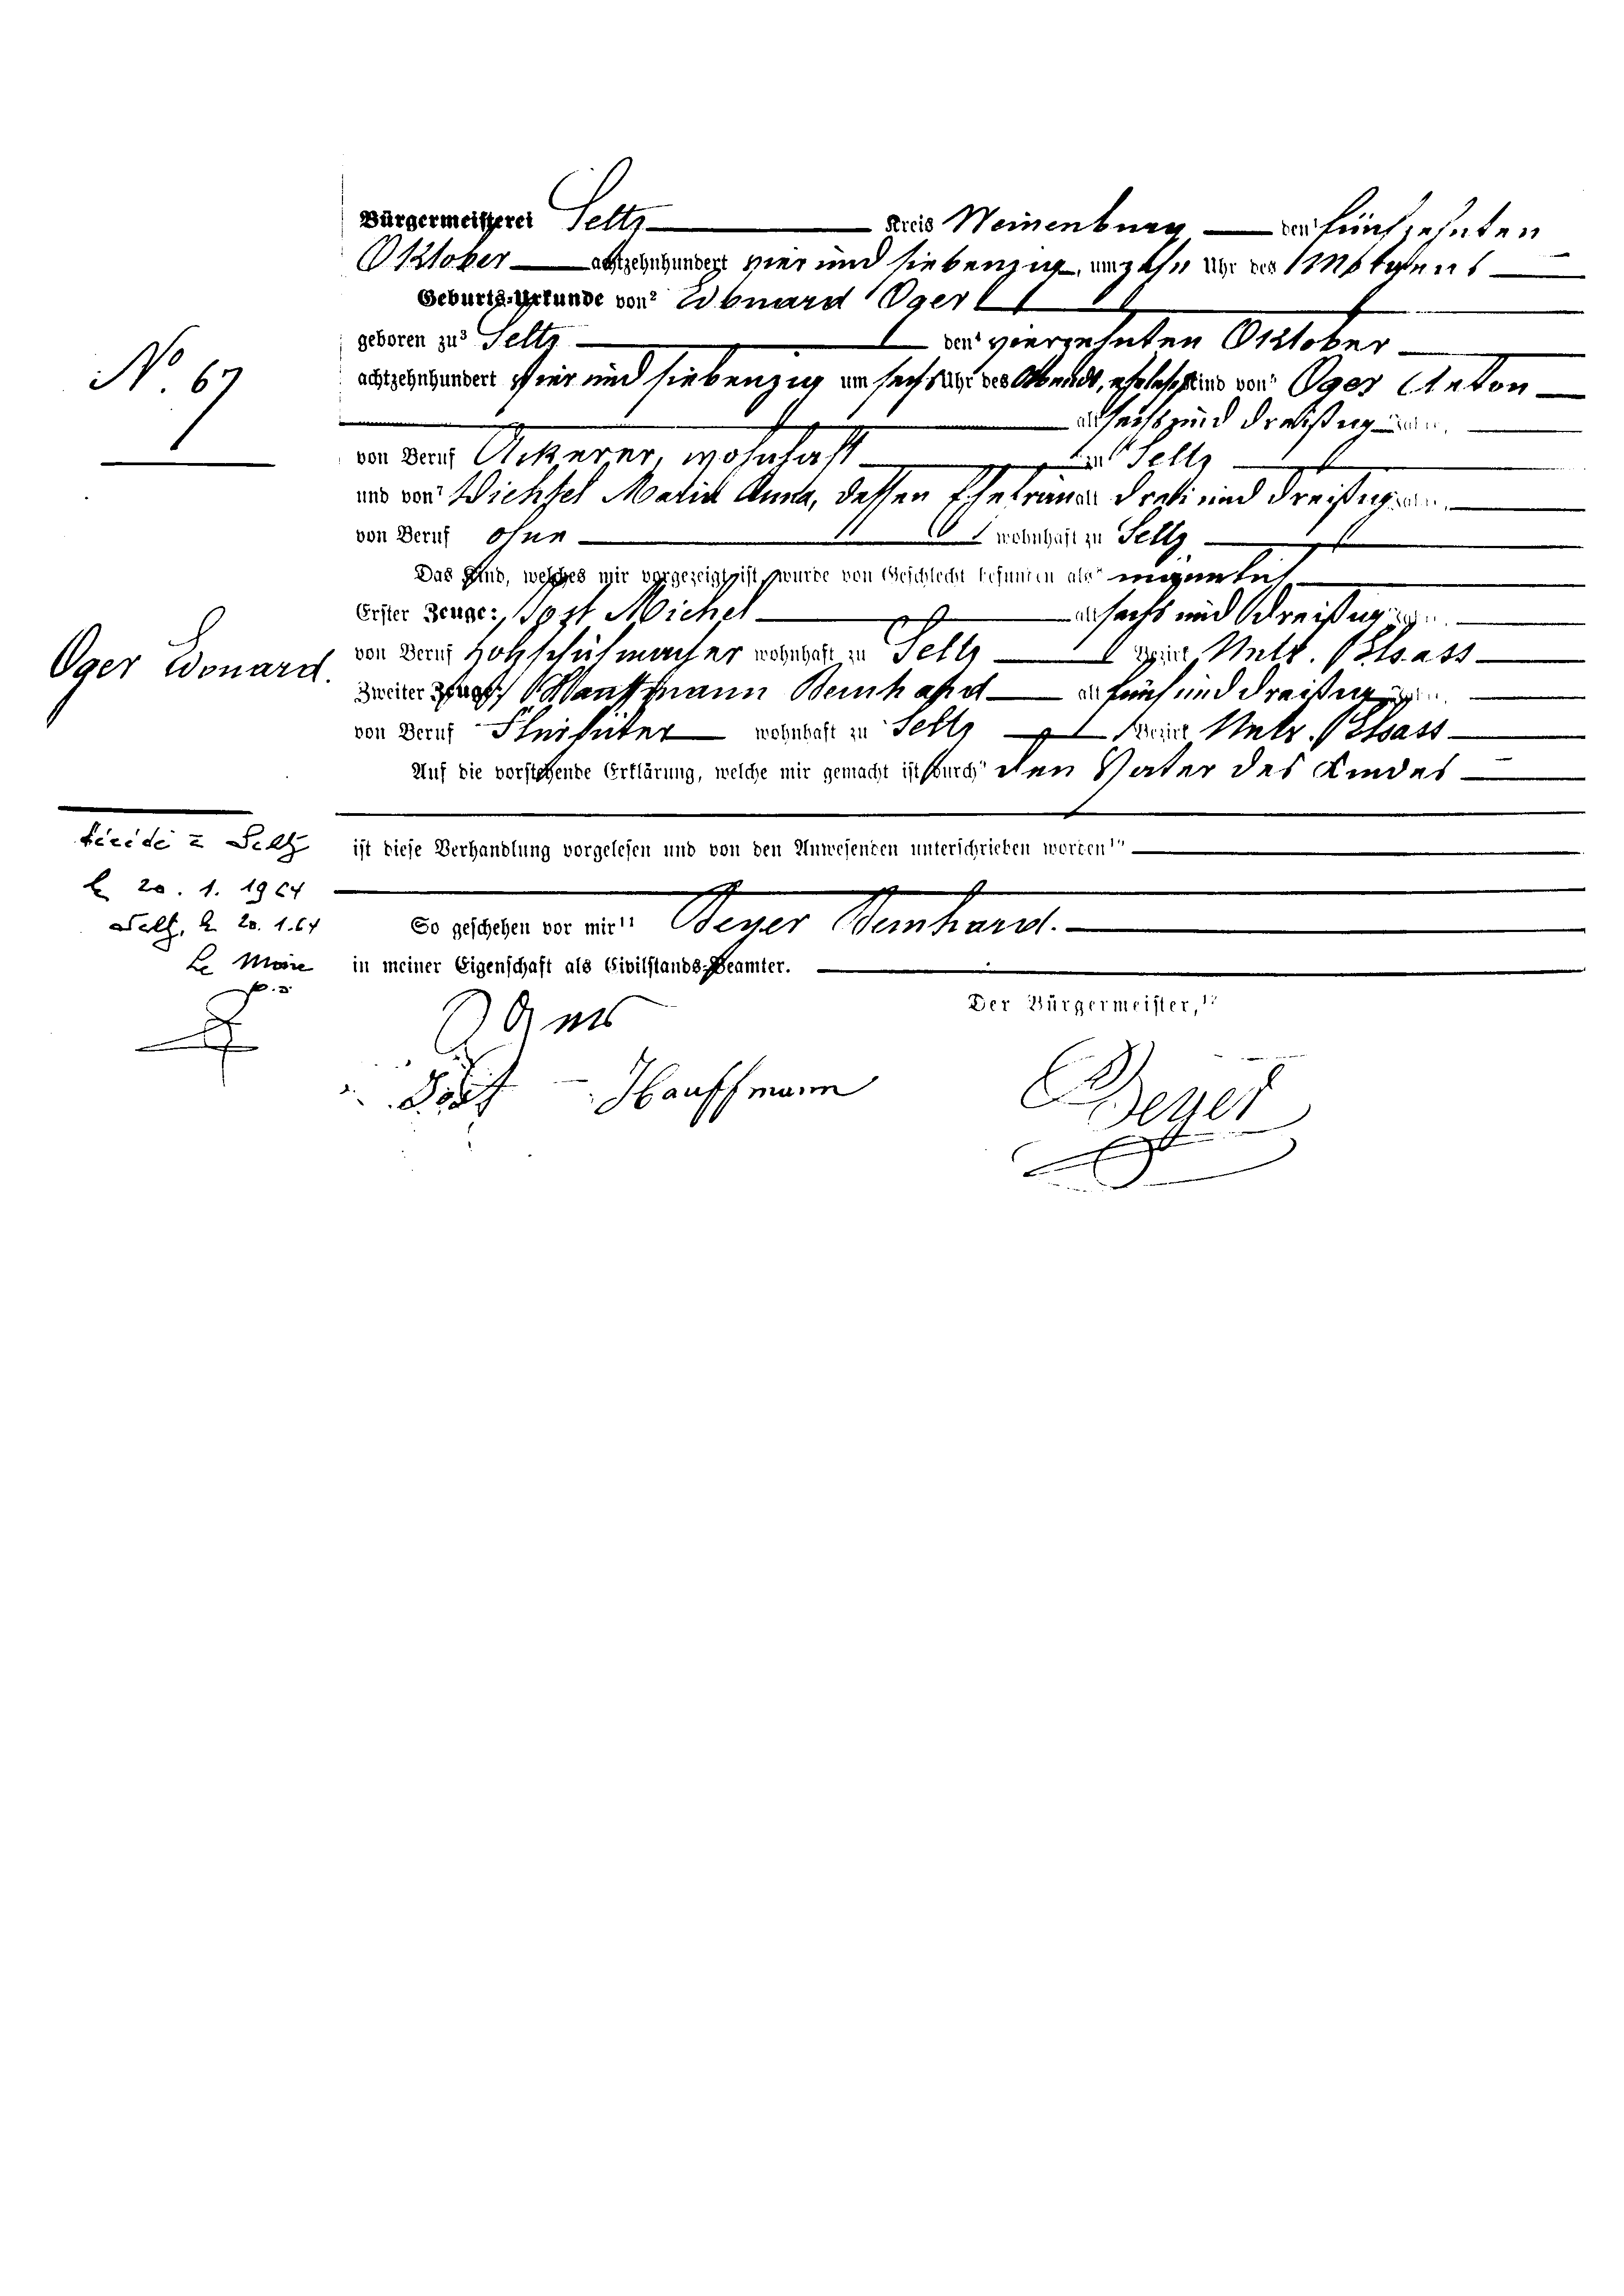 Bürgermeisterei Seltz Kreis Weissenburg den¹ fünfzehnten
Oktober achtzehnhundert vier und siebenzig, um zehn Uhr des Morgens
Geburts-Urkunde von² Edouard Oger
geboren zu³ Seltz den⁴ vierzehnten Oktober
achtzehnhundert vier und siebenzig um sechs Uhr des Abends, eheliches Kind von⁶ Oger Anton
alt sechs und dreißig Jahre,
von Beruf Ackerer, wohnhaft zu Seltz
und von⁷ Wichsel Maria Anna, dessen Ehefrau alt drei und dreißig Jahre,
von Beruf ohne wohnhaft zu Seltz
Das Kind, welches mir vorgezeigt ist, wurde von Geschlecht befunden als⁸ männlich
Erster Zeuge: Jost Michel alt sechs und dreißig Jahre,
von Beruf Holzschuhmacher wohnhaft zu Seltz Bezirk Unter-Elsass
Zweiter Zeuge: Hauffmann Bernhard alt fünf und dreißig Jahre,
von Beruf Flurhüter wohnhaft zu Seltz Bezirk Unter-Elsass
Auf die vorstehende Erklärung, welche mir gemacht ist durch⁹ den Vater des Kindes
ist diese Verhandlung vorgelesen und von den Anwesenden unterschrieben worden¹⁰
So geschehen vor mir¹¹ Beyer Bernhard.
in meiner Eigenschaft als Civilstands-Beamter.
Der Bürgermeister,¹²
Jost Hauffmann
Beyer
No. 67
Oger Edouard.
décédé à Seltz
le 20. 1. 1964
Seltz, le 20.1.64
Le Maire